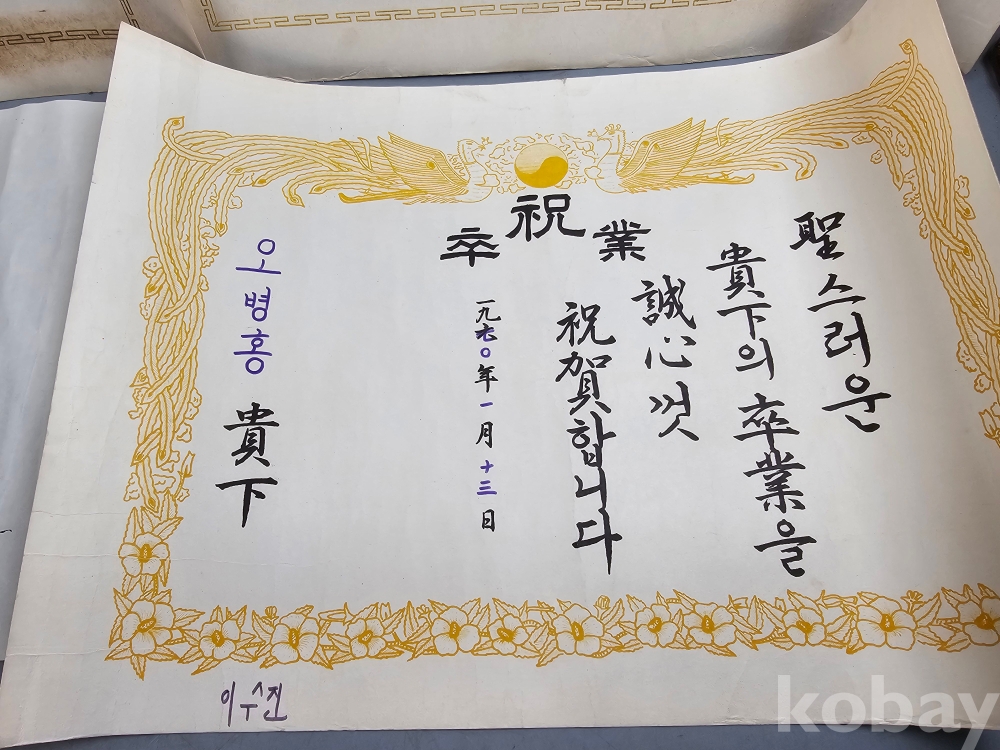 祝
卒 業
聖스러운
貴下의 卒業을
誠心껏
祝賀합니다
一九七〇年一月十三日
오병홍 貴下
이수진
kobay